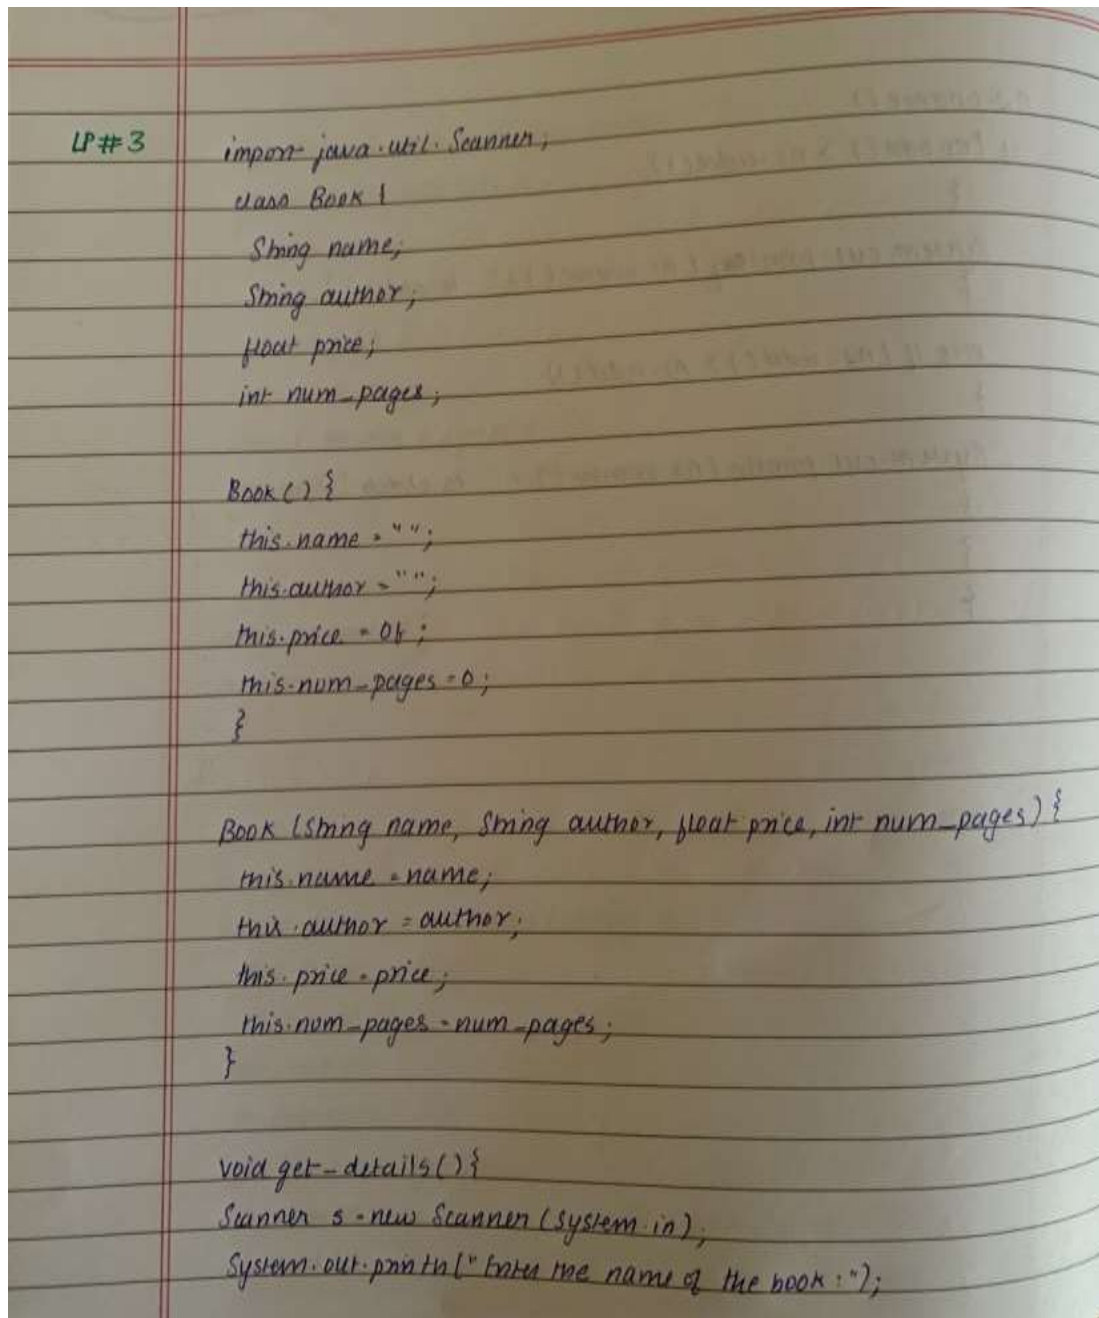 LP#3
import java.util.Scanner;
class Book {
String name;
String author;
float price;
int num_pages;
Book () {
this.name = "";
this.author = "";
this.price = 0f;
this.num_pages = 0;
}
Book (String name, String author, float price, int num_pages) {
this.name = name;
this.author = author;
this.price = price;
this.num_pages = num_pages;
}
void get_details() {
Scanner s = new Scanner (System.in);
System.out.println(" Enter the name of the book : ");